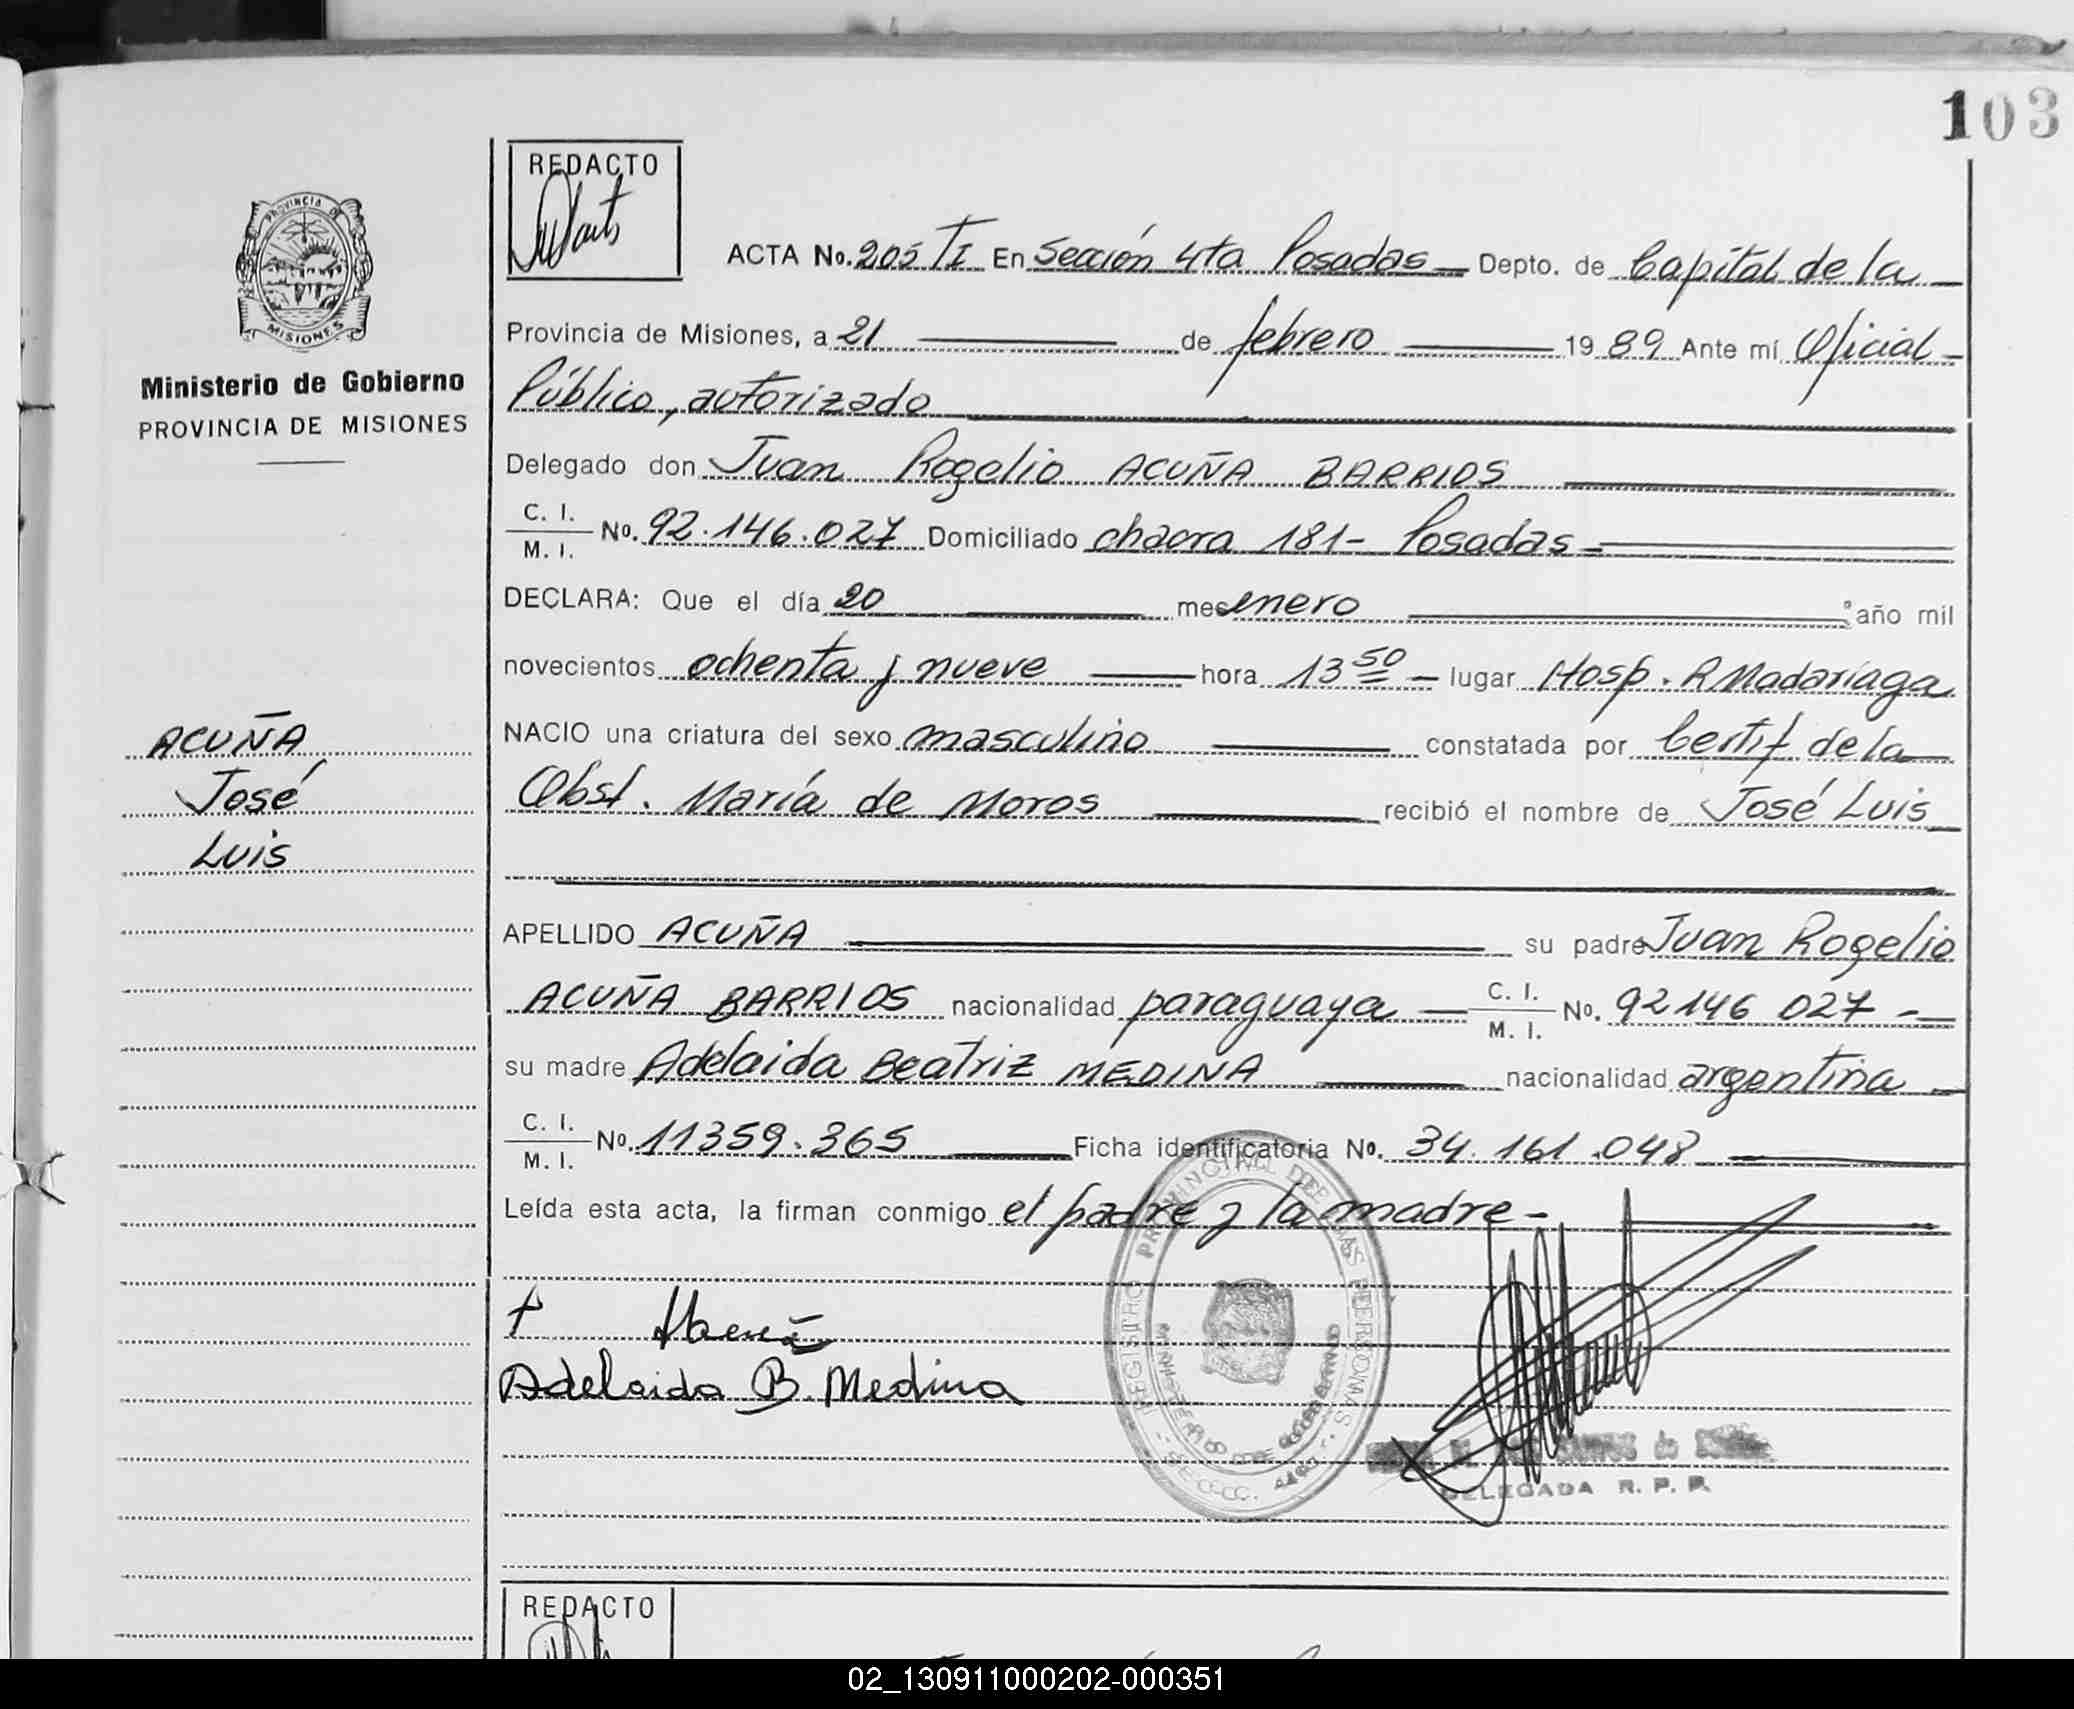 103
PROVINCIA DE
MISIONES
Ministerio de Gobierno
PROVINCIA DE MISIONES
ACUÑA
José
Luis
REDACTO
ACTA No. 205 TI En Sección 4ta Posadas Depto. de Capital de la
Provincia de Misiones, a 21 de febrero 1989 Ante mí Oficial
Público, autorizado
Delegado don Juan Rogelio ACUÑA BARRIOS
C. I.
M. I. No. 92.146.027 Domiciliado chacra 181- Posadas
DECLARA: Que el día 20 mes enero año mil
novecientos ochenta y nueve hora 13 50 lugar Hosp. R Madariaga
NACIO una criatura del sexo masculino constatada por Certif de la
Obst. María de Moros recibió el nombre de José Luis
APELLIDO ACUÑA su padre Juan Rogelio
ACUÑA BARRIOS nacionalidad paraguaya C. I. M. I. No. 92146 027
su madre Adelaida Beatriz MEDINA nacionalidad argentina
C. I.
M. I. No. 11359.365 Ficha identificatoria No. 34.161.048
Leída esta acta, la firman conmigo el padre y la madre
Adelaida B. Medina
REGISTRO PROVINCIAL DE LAS PERSONAS
MINISTERIO DE GOBIERNO
DELEGADA R. P. P.
REDACTO
02_130911000202-000351